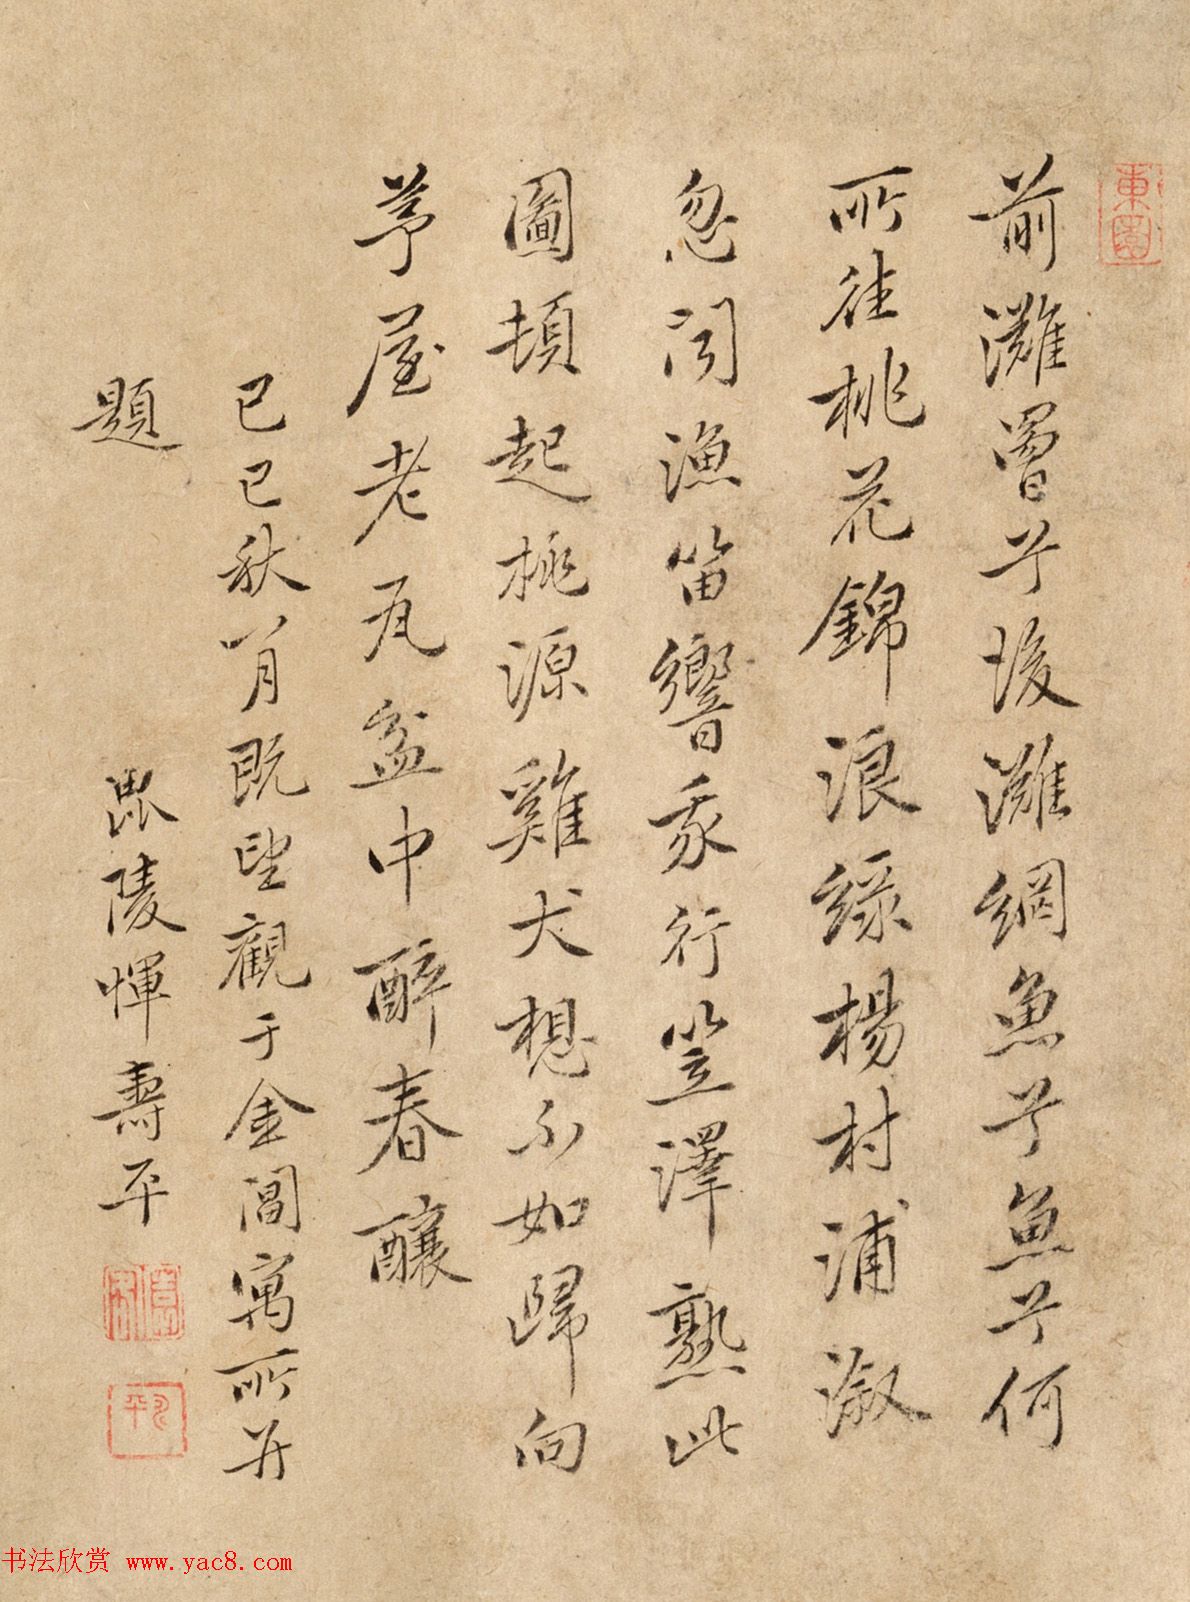 東園
前灘罾兮後灘網魚兮魚兮何
所往桃花錦浪綠楊村浦漵
忽聞漁笛響我行笠澤熟此
圖頓起桃源雞犬想不如歸向
茅屋老瓦盆中醉春釀
己巳秋八月既望觀于金閶寓所并
題 毘陵惲壽平
书法欣赏 www.yac8.com